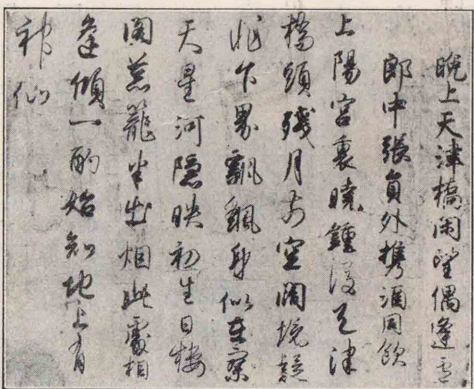 晚上天津橋閑望偶逢盧
郎中張員外携酒同飲
上陽宮裏曉鍾後天津
橋頭殘月前空闊境疑
非下界飄飄身似在寥
天星河隱映初生日樓
閣葱籠半出烟此處相
逢傾一酌始知地上有
神仙